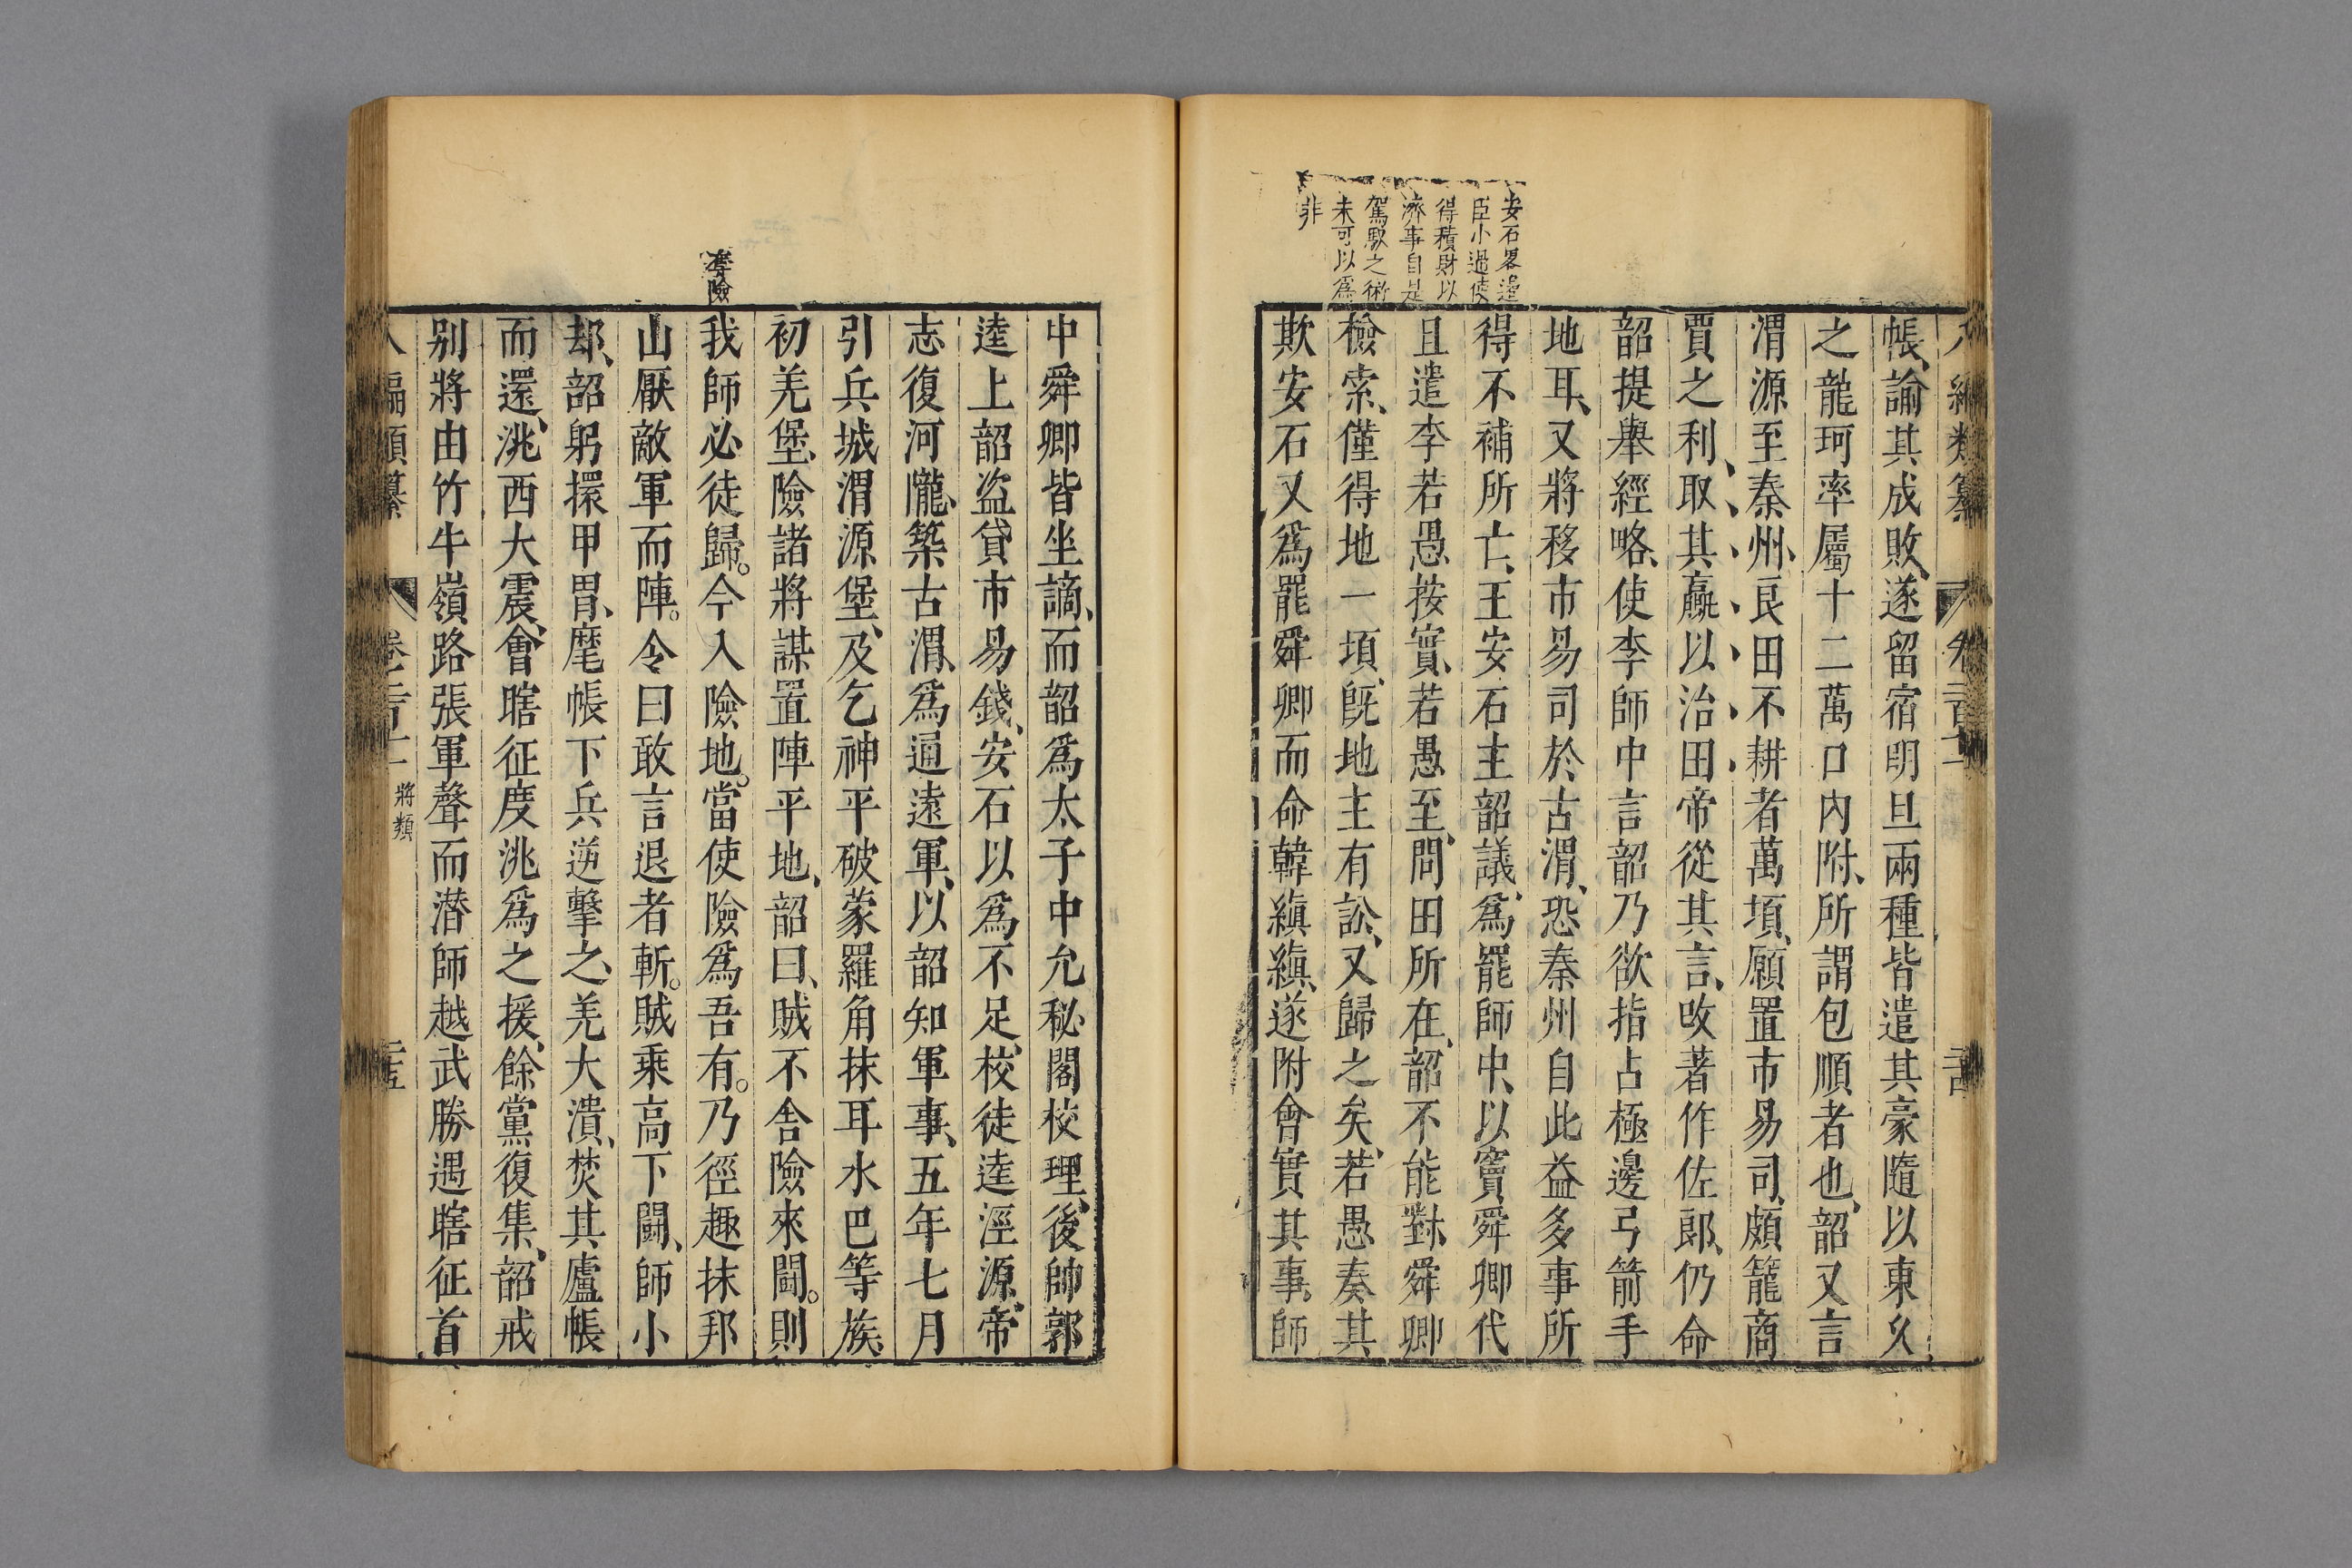 帳諭其成敗遂留宿明旦兩種皆遣其豪隨以東久
之龍珂率屬十二萬口內附所謂包順者也韶又言
渭源至秦州良田不耕者萬頃願置市易司頗籠商
賈之利取其贏以治田帝從其言改著作佐郎仍命
韶提舉經略使李師中言韶乃欲指占極邊弓箭手
地耳又將移市易司於古渭恐秦州自此益多事所
得不補所亡王安石主韶議爲罷師中以竇舜卿代
且遣李若愚按實若愚至問田所在韶不能對舜卿
檢索僅得地一頃旣地主有訟又歸之矣若愚奏其
欺安石又爲罷舜卿而命韓縝縝遂附會實其事師
安石畧邊
臣小過使
得積財以
濟事自是
駕馭之術
未可以爲
非
中舜卿皆坐謫而韶爲太子中允秘閣校理後帥郭
逵上韶盜貸市易錢安石以爲不足校徒逵涇源帝
志復河隴築古渭爲通遠軍以韶知軍事五年七月
引兵城渭源堡及乞神平破蒙羅角抹耳水巴等族
初羌堡險諸將謀置陣平地韶曰賊不舍險來鬬。則
我師必徒歸。今入險地。當使險爲吾有。乃徑趣抹邦
山厭敵軍而陣。令曰敢言退者斬。賊乘高下鬬師小
却韶躬擐甲胃麾帳下兵逆擊之羌大潰焚其廬帳
而還洮西大震會瞎征度洮爲之援餘黨復集韶戒
别將由竹牛嶺路張軍聲而潜師越武勝遇瞎征首
奪險
八編類纂
將類